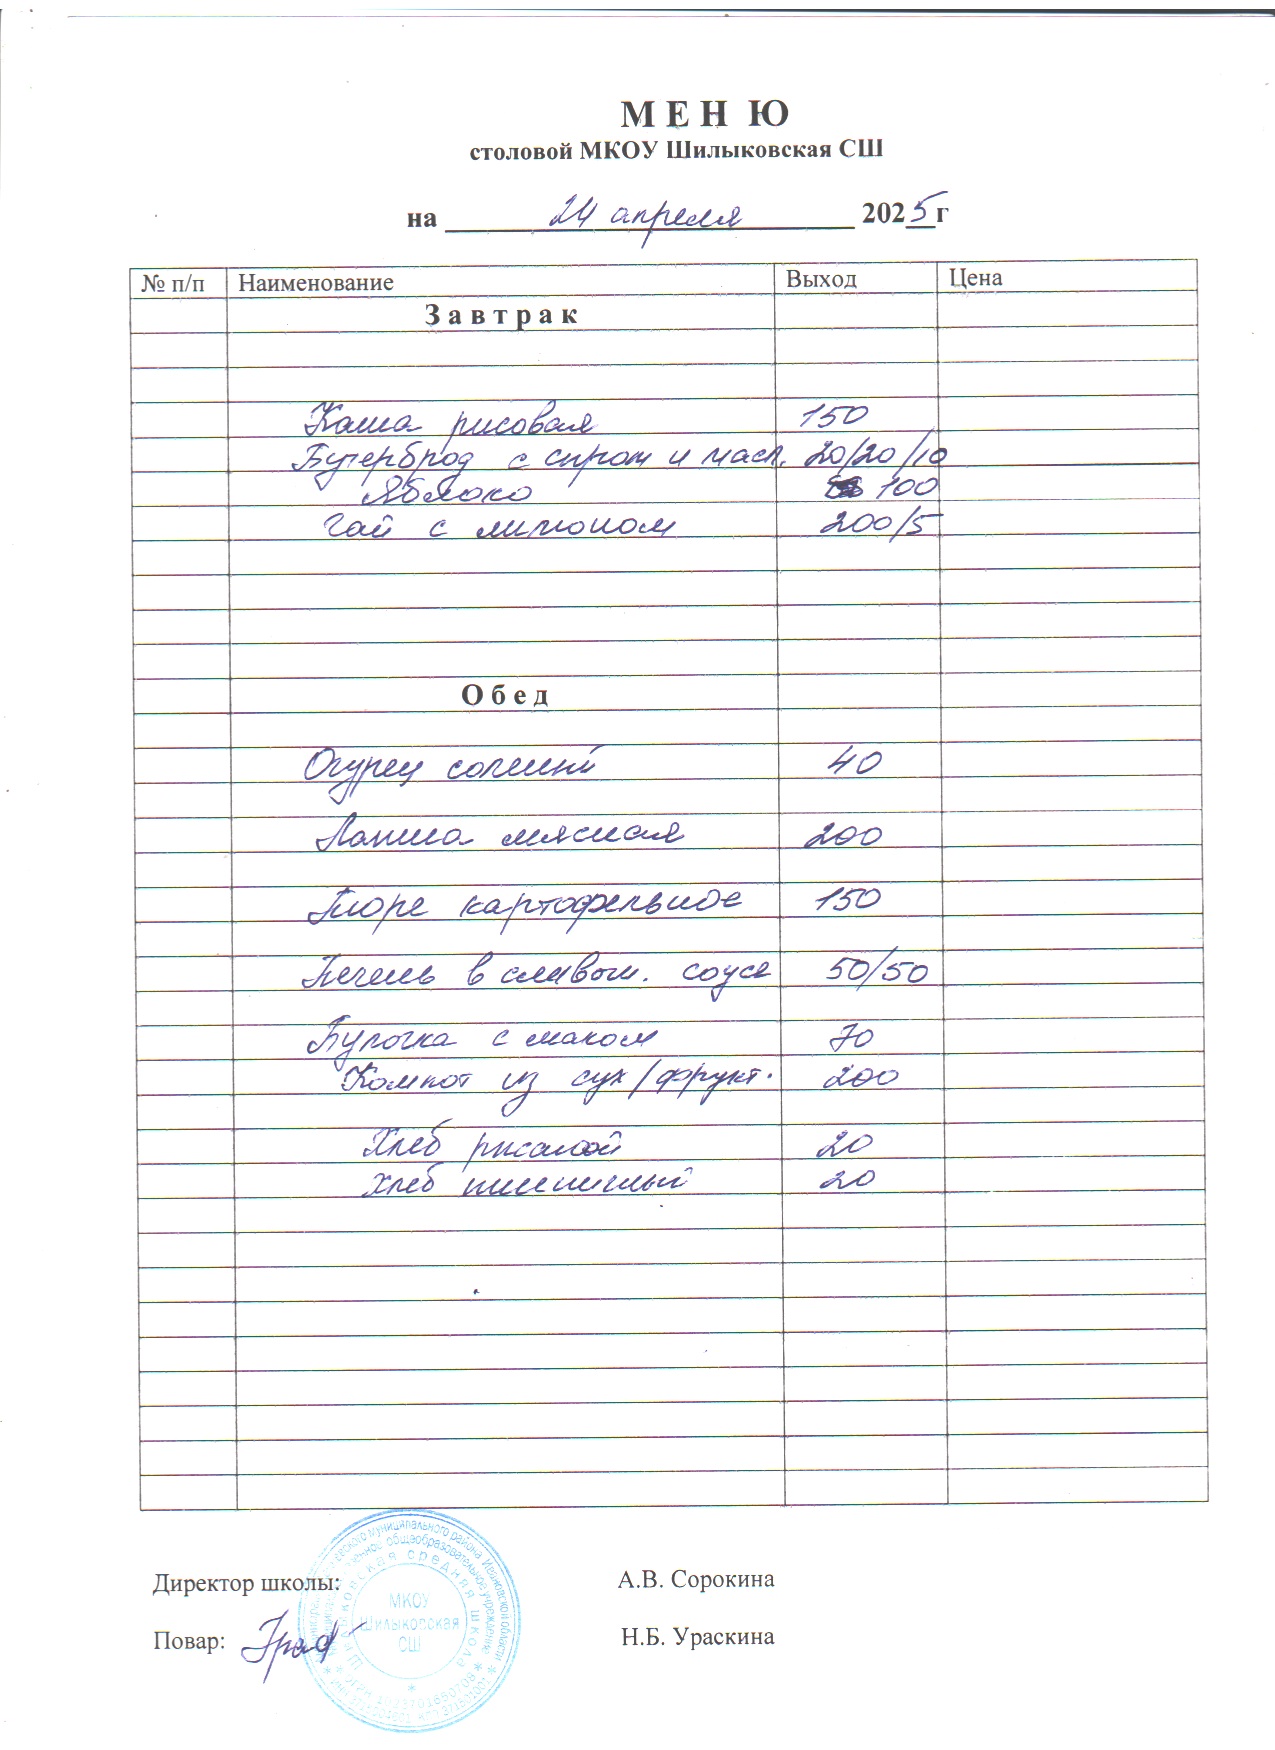 М Е Н Ю
столовой МКОУ Шилыковская СШ
на 24 апреля 2025 г
№ п/п Наименование Выход Цена
З а в т р а к
Каша рисовая 150
Бутерброд с сыром и масл. 20/20/10
Яблоко 100
Чай с лимоном 200/5
О б е д
Огурец соленый 40
Лапша мясная 200
Пюре картофельное 150
Печень в сливочн. соусе 50/50
Булочка с маком 70
Компот из сух/фрукт. 200
Хлеб ржаной 20
Хлеб пшеничный 20
Директор школы: А.В. Сорокина
Повар: Н.Б. Ураскина
МКОУ
Шилыковская
СШ